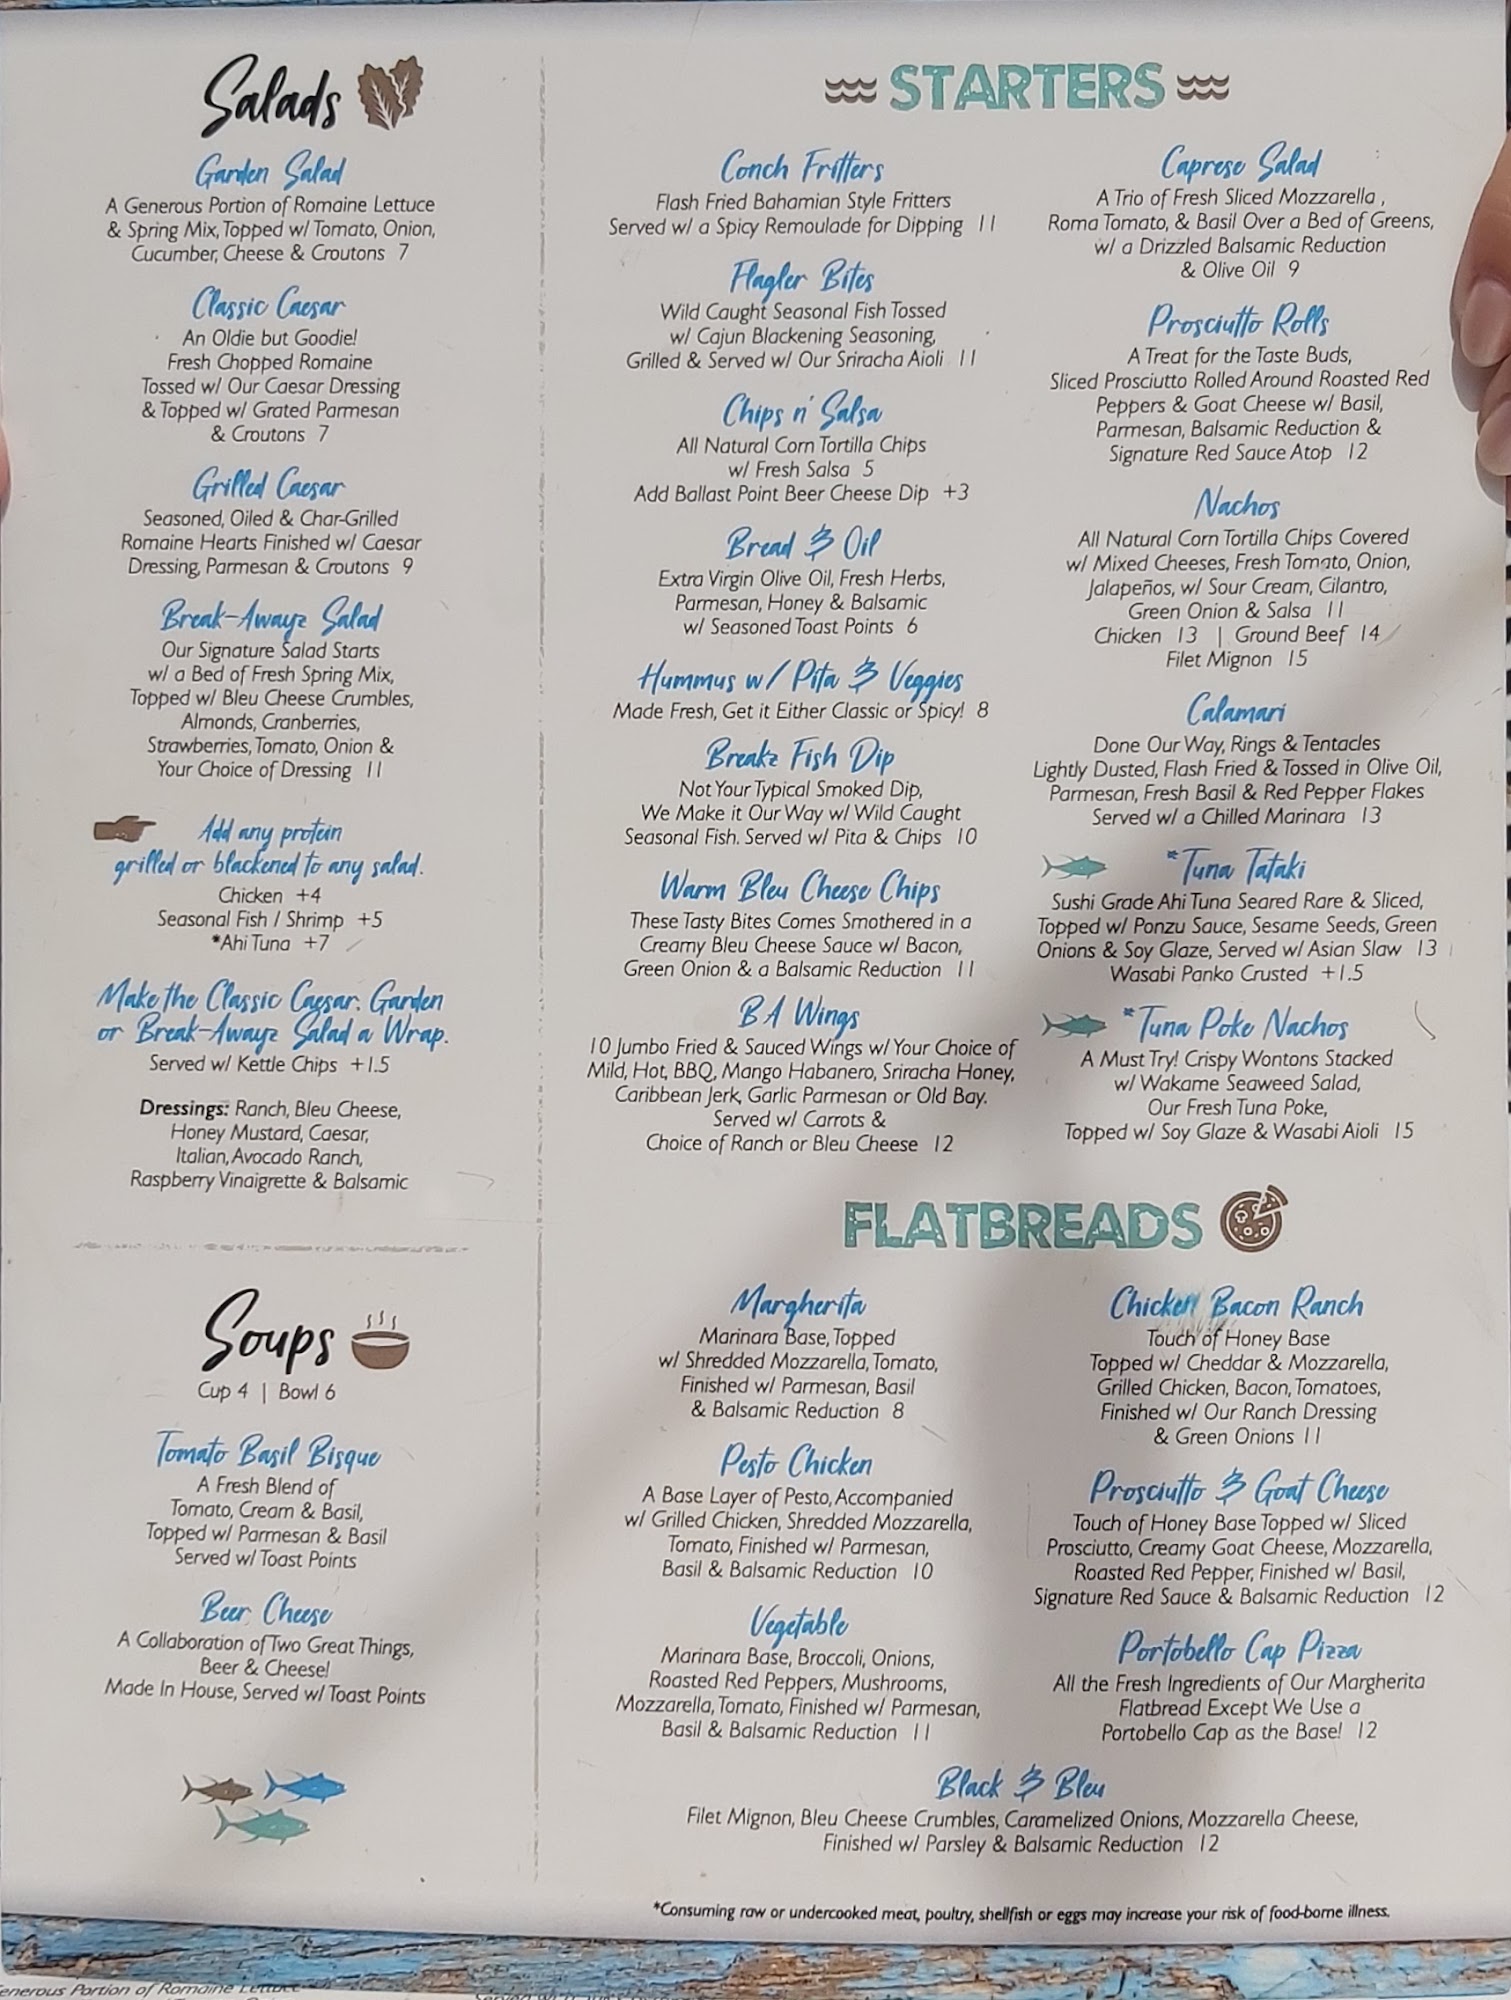 Salads
Garden Salad
A Generous Portion of Romaine Lettuce
& Spring Mix, Topped w/ Tomato, Onion,
Cucumber, Cheese & Croutons 7
Classic Caesar
An Oldie but Goodie!
Fresh Chopped Romaine
Tossed w/ Our Caesar Dressing
& Topped w/ Grated Parmesan
& Croutons 7
Grilled Caesar
Seasoned, Oiled & Char-Grilled
Romaine Hearts Finished w/ Caesar
Dressing, Parmesan & Croutons 9
Break-Awayz Salad
Our Signature Salad Starts
w/ a Bed of Fresh Spring Mix,
Topped w/ Bleu Cheese Crumbles,
Almonds, Cranberries,
Strawberries, Tomato, Onion &
Your Choice of Dressing 11
Add any protein
grilled or blackened to any salad.
Chicken +4
Seasonal Fish / Shrimp +5
*Ahi Tuna +7
Make the Classic Caesar, Garden
or Break-Awayz Salad a Wrap.
Served w/ Kettle Chips +1.5
Dressings: Ranch, Bleu Cheese,
Honey Mustard, Caesar,
Italian, Avocado Ranch,
Raspberry Vinaigrette & Balsamic
Soups
Cup 4 | Bowl 6
Tomato Basil Bisque
A Fresh Blend of
Tomato, Cream & Basil,
Topped w/ Parmesan & Basil
Served w/ Toast Points
Beer Cheese
A Collaboration of Two Great Things,
Beer & Cheese!
Made In House, Served w/ Toast Points
STARTERS
Conch Fritters
Flash Fried Bahamian Style Fritters
Served w/ a Spicy Remoulade for Dipping 11
Flagler Bites
Wild Caught Seasonal Fish Tossed
w/ Cajun Blackening Seasoning,
Grilled & Served w/ Our Sriracha Aioli 11
Chips n' Salsa
All Natural Corn Tortilla Chips
w/ Fresh Salsa 5
Add Ballast Point Beer Cheese Dip +3
Bread & Oil
Extra Virgin Olive Oil, Fresh Herbs,
Parmesan, Honey & Balsamic
w/ Seasoned Toast Points 6
Hummus w/ Pita & Veggies
Made Fresh, Get it Either Classic or Spicy! 8
Breakz Fish Dip
Not Your Typical Smoked Dip,
We Make it Our Way w/ Wild Caught
Seasonal Fish. Served w/ Pita & Chips 10
Warm Bleu Cheese Chips
These Tasty Bites Comes Smothered in a
Creamy Bleu Cheese Sauce w/ Bacon,
Green Onion & a Balsamic Reduction 11
BA Wings
10 Jumbo Fried & Sauced Wings w/ Your Choice of
Mild, Hot, BBQ, Mango Habanero, Sriracha Honey,
Caribbean Jerk, Garlic Parmesan or Old Bay.
Served w/ Carrots &
Choice of Ranch or Bleu Cheese 12
Caprese Salad
A Trio of Fresh Sliced Mozzarella ,
Roma Tomato, & Basil Over a Bed of Greens,
w/ a Drizzled Balsamic Reduction
& Olive Oil 9
Prosciutto Rolls
A Treat for the Taste Buds,
Sliced Prosciutto Rolled Around Roasted Red
Peppers & Goat Cheese w/ Basil,
Parmesan, Balsamic Reduction &
Signature Red Sauce Atop 12
Nachos
All Natural Corn Tortilla Chips Covered
w/ Mixed Cheeses, Fresh Tomato, Onion,
Jalapeños, w/ Sour Cream, Cilantro,
Green Onion & Salsa 11
Chicken 13 | Ground Beef 14
Filet Mignon 15
Calamari
Done Our Way, Rings & Tentacles
Lightly Dusted, Flash Fried & Tossed in Olive Oil,
Parmesan, Fresh Basil & Red Pepper Flakes
Served w/ a Chilled Marinara 13
*Tuna Tataki
Sushi Grade Ahi Tuna Seared Rare & Sliced,
Topped w/ Ponzu Sauce, Sesame Seeds, Green
Onions & Soy Glaze, Served w/ Asian Slaw 13
Wasabi Panko Crusted +1.5
*Tuna Poke Nachos
A Must Try! Crispy Wontons Stacked
w/ Wakame Seaweed Salad,
Our Fresh Tuna Poke,
Topped w/ Soy Glaze & Wasabi Aioli 15
FLATBREADS
Margherita
Marinara Base, Topped
w/ Shredded Mozzarella, Tomato,
Finished w/ Parmesan, Basil
& Balsamic Reduction 8
Pesto Chicken
A Base Layer of Pesto, Accompanied
w/ Grilled Chicken, Shredded Mozzarella,
Tomato, Finished w/ Parmesan,
Basil & Balsamic Reduction 10
Vegetable
Marinara Base, Broccoli, Onions,
Roasted Red Peppers, Mushrooms,
Mozzarella, Tomato, Finished w/ Parmesan,
Basil & Balsamic Reduction 11
Chicken Bacon Ranch
Touch of Honey Base
Topped w/ Cheddar & Mozzarella,
Grilled Chicken, Bacon, Tomatoes,
Finished w/ Our Ranch Dressing
& Green Onions 11
Prosciutto & Goat Cheese
Touch of Honey Base Topped w/ Sliced
Prosciutto, Creamy Goat Cheese, Mozzarella,
Roasted Red Pepper, Finished w/ Basil,
Signature Red Sauce & Balsamic Reduction 12
Portobello Cap Pizza
All the Fresh Ingredients of Our Margherita
Flatbread Except We Use a
Portobello Cap as the Base! 12
Black & Bleu
Filet Mignon, Bleu Cheese Crumbles, Caramelized Onions, Mozzarella Cheese,
Finished w/ Parsley & Balsamic Reduction 12
*Consuming raw or undercooked meat, poultry, shellfish or eggs may increase your risk of food-borne illness.
Portion of Romaine Lettuce